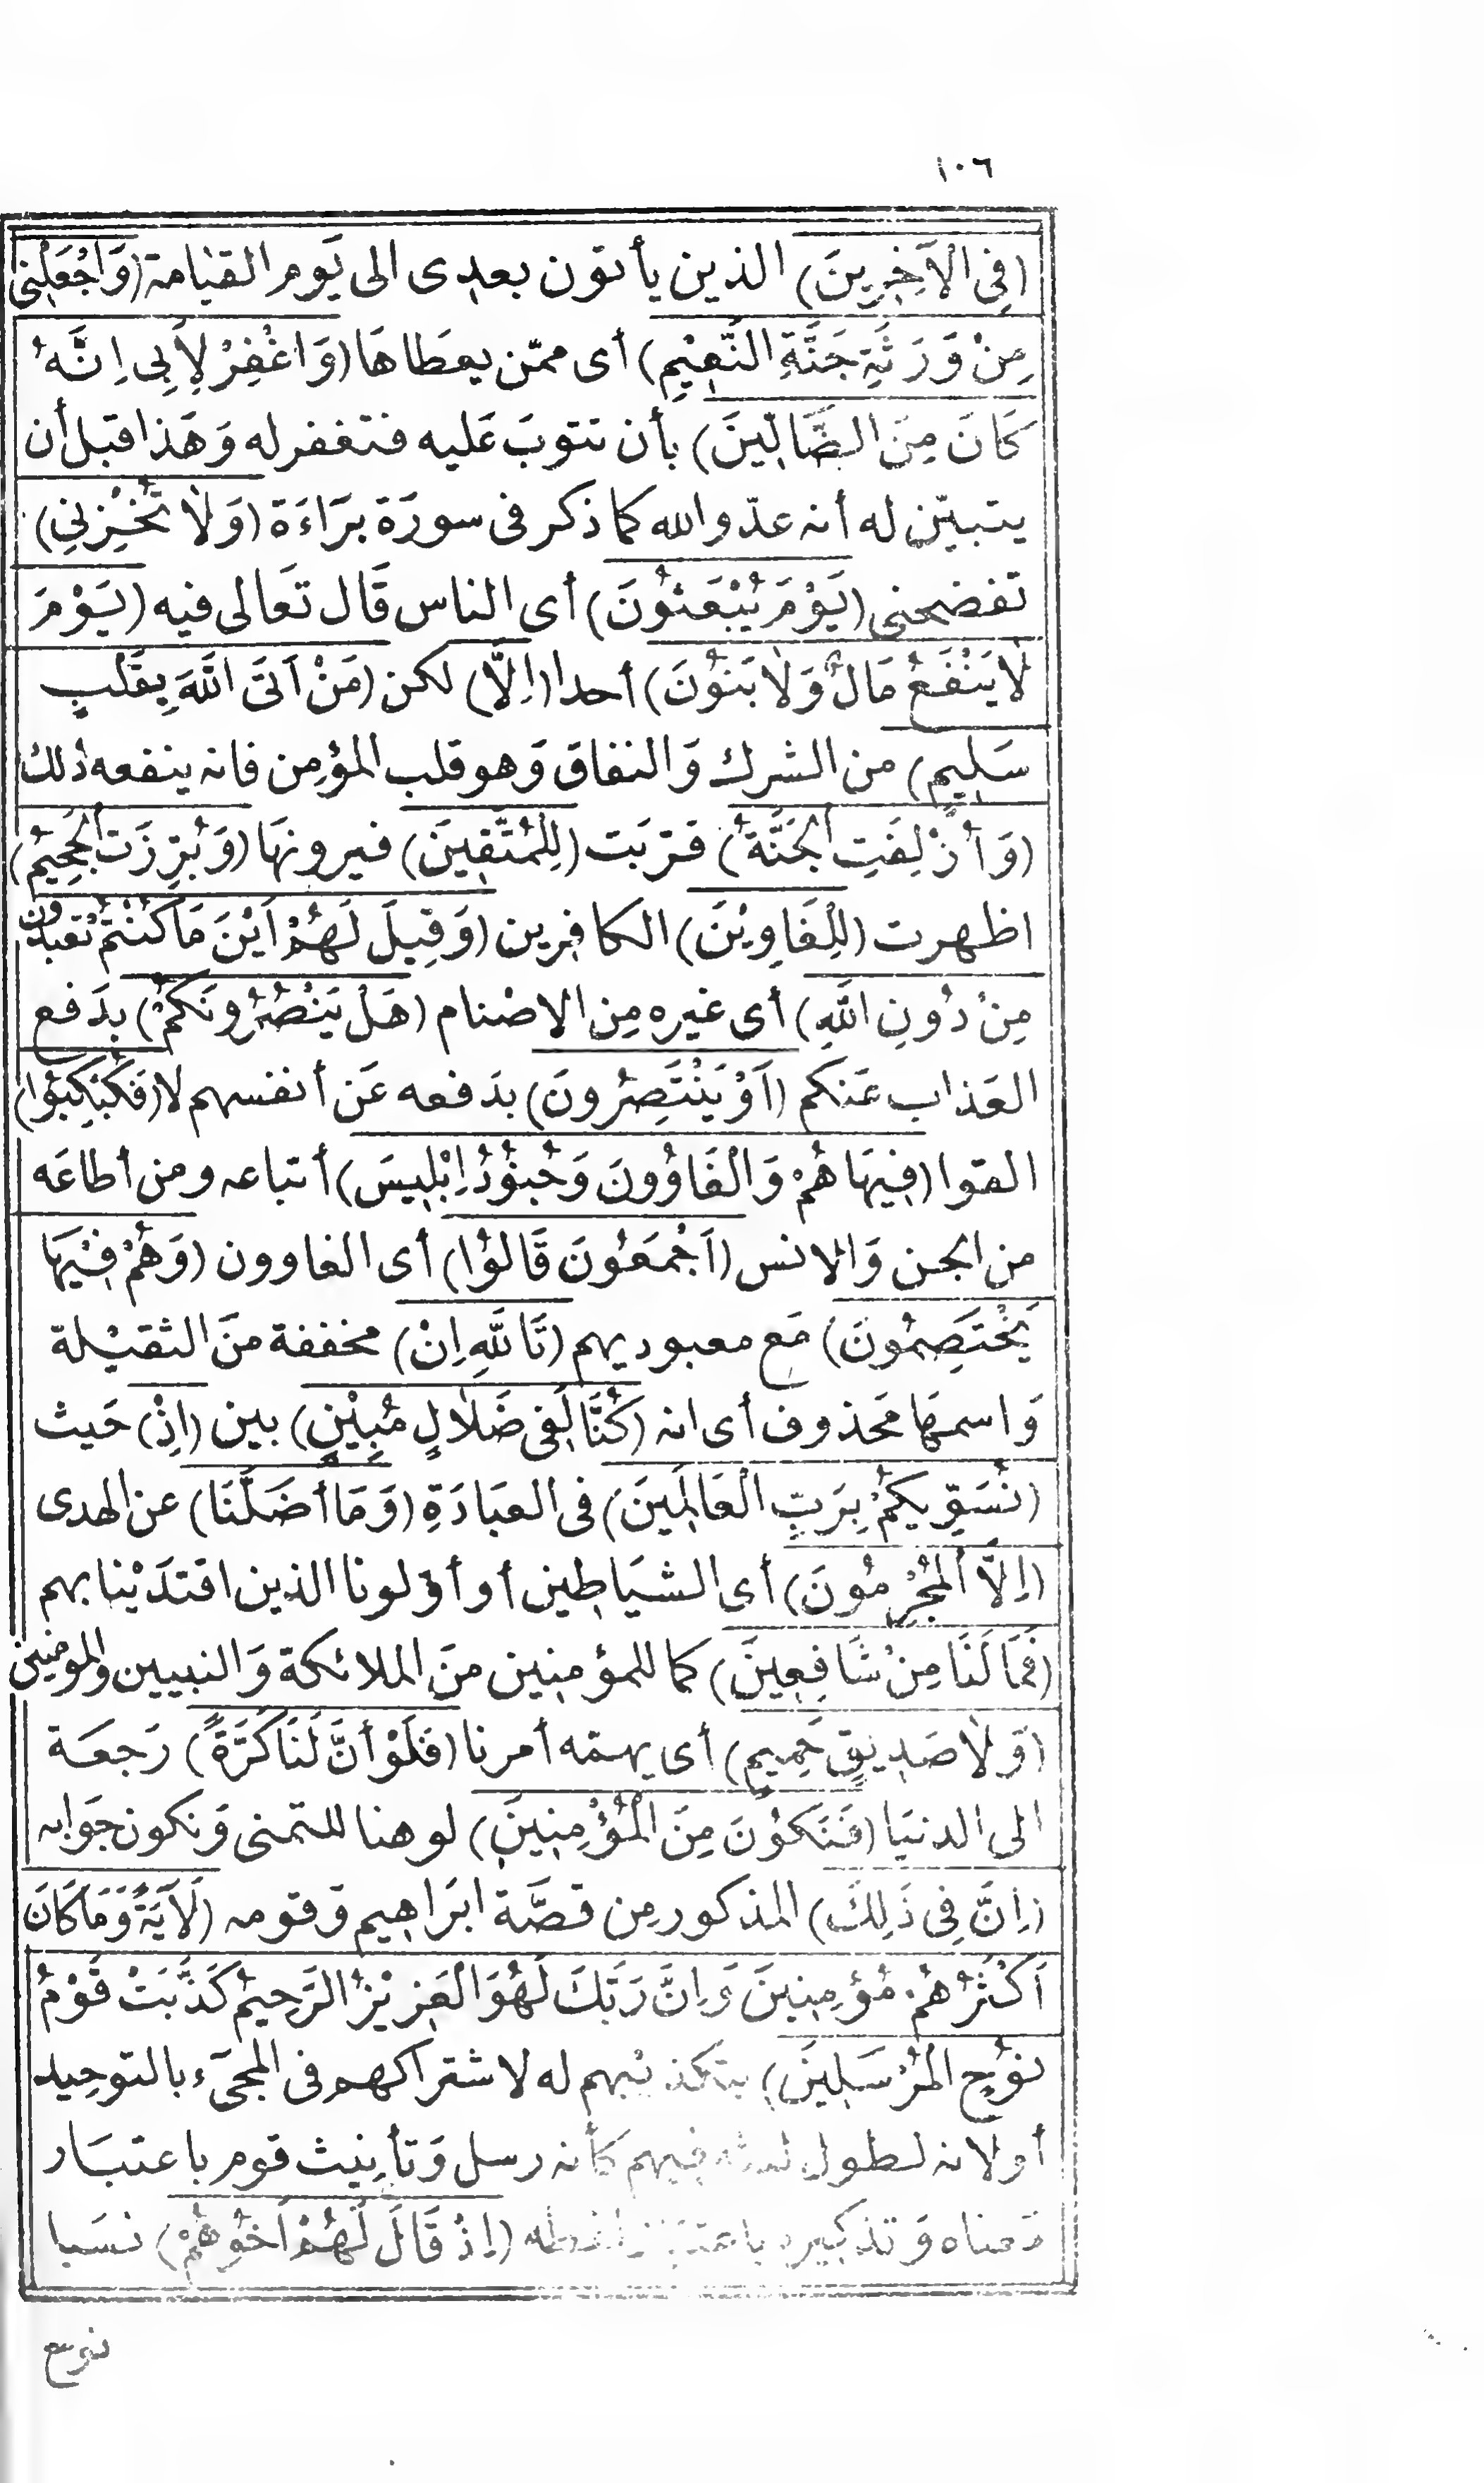 ١٠٦
(فِي الْاٰخِرِينَ) الذين يأتون بعدى الى يَوم القيامة (وَاجْعَلْنِي
مِنْ وَرَثَةِ جَنَّةِ النَّعِيْمِ) أى ممّن يعطاهَا (وَاغْفِرْ لِأَبِى اِنَّهُ
كَانَ مِنَ الضَّالِّينَ) بأن تتوبَ عَليه فتغفرله وَهَذا قبل أن
يتبيّن له أنه عدّو الله كما ذكر فى سورَة برَاءَة (وَلَا تُخْزِنِي)
تفضحنى (يَوْمَ يُبْعَثُوْنَ) أى الناس قَال تعَالى فيه (يَوْمَ
لَا يَنْفَعُ مَالٌ وَلَا بَنُوْنَ) أحدا (اِلَّا) لكن (مَنْ اَتَى اللّٰهَ بِقَلْبٍ
سَلِيمٍ) من الشرك وَالنفاق وَهو قلب المؤمِن فانه ينفعه ذلك
(وَاُزْلِفَتِ الْجَنَّةُ) قرّبَت (لِلْمُتَّقِينَ) فيرونهَا (وَبُرِّزَتِ الْجَحِيْمُ)
اظهرت (لِلْغَاوِيْنَ) الكافِرين (وَقِيلَ لَهُمْ اَيْنَ مَا كُنْتُمْ تَعْبُدُونَ
مِنْ دُونِ اللّٰهِ) أى غيره مِن الاصْنام (هَلْ يَنْصُرُونَكُمْ) بِدَفع
العَذاب عَنكم (اَوْ يَنْتَصِرُونَ) بدَفعه عَن أنفسهم لا (فَكُبْكِبُوْا)
القوا (فِيْهَا هُمْ وَالْغَاوُونَ وَجُنُوْدُ اِبْلِيسَ) أتباعه ومن أطاعَه
من الجن وَالانس (اَجْمَعُوْنَ قَالُوْا) أى الغاوون (وَهُمْ فِيْهَا
يَخْتَصِمُونَ) مَع معبوديهم (تَاللّٰهِ اِنْ) مخففة منَ الثقيْلة
وَاسمهَا محَذوف أى انه (كُنَّا لَفِى ضَلَالٍ مُبِيْنٍ) بين (اِذْ) حَيث
(نُسَوِّيكُمْ بِرَبِّ الْعَالَمِينَ) فى العبَادَةِ (وَمَا أضَلَّنَا) عن الهدى
(اِلَّا الْمُجْرِمُونَ) أى الشيَاطين أو أوّلونا الذين اقتدَيْنا بهم
(فَمَا لَنَا مِنْ شَافِعِينَ) كما للمؤمنين منَ الملائكة وَالنبيين والمومنين
(وَلَا صَدِيقٍ حَمِيمٍ) أى يهمّه أمرنا (فَلَوْ أنَّ لَنَا كَرَّةً) رَجعَة
الى الدنيَا (فَنَكُوْنَ مِنَ الْمُؤْمِنِينَ) لو هنا للتمنى وَنكون جَوابه
(اِنَّ فِى ذَلِكَ) المذكور مِن قصَّة ابرَاهِيم وَقومه (لَاٰيَةً وَمَا كَانَ
اَكْثَرُهُمْ مُؤْمِنِينَ وَاِنَّ رَبَّكَ لَهُوَ الْعَزِيْزُ الرَّحِيمُ كَذَّبَتْ قَوْمُ
نُوْحٍ الْمُرْسَلِينَ) بتكذيبهم له لاشتراكهم فى المجىَء بالتوحِيد
أولانه لطول لبثه فيهم كأنه رسل وَتأنيث قوم باعتبَار
معناه وَتذكيره باعتبار لفظه (اِذْ قَالَ لَهُمْ اَخُوْهُمْ) نسَبا